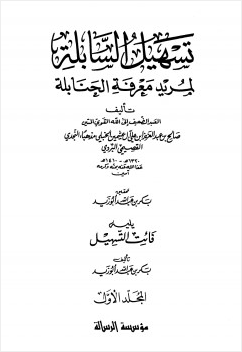 تسهيل السابلة
لمريد معرفة الحنابلة
تأليف
العبد الضعيف إلى الله القوي المتين
صالح بن عبد العزيز بن علي آل عثيمين الحنبلي مذهبا، النجدي
القصيمي البردي
١٣٢٠هـ - ١٤١٠هـ
آمين
تحقيق
بكر بن عبد الله أبو زيد
يليه
فائت التسهيل
تأليف
بكر بن عبد الله أبو زيد
المجلد الأول
مؤسسة الرسالة